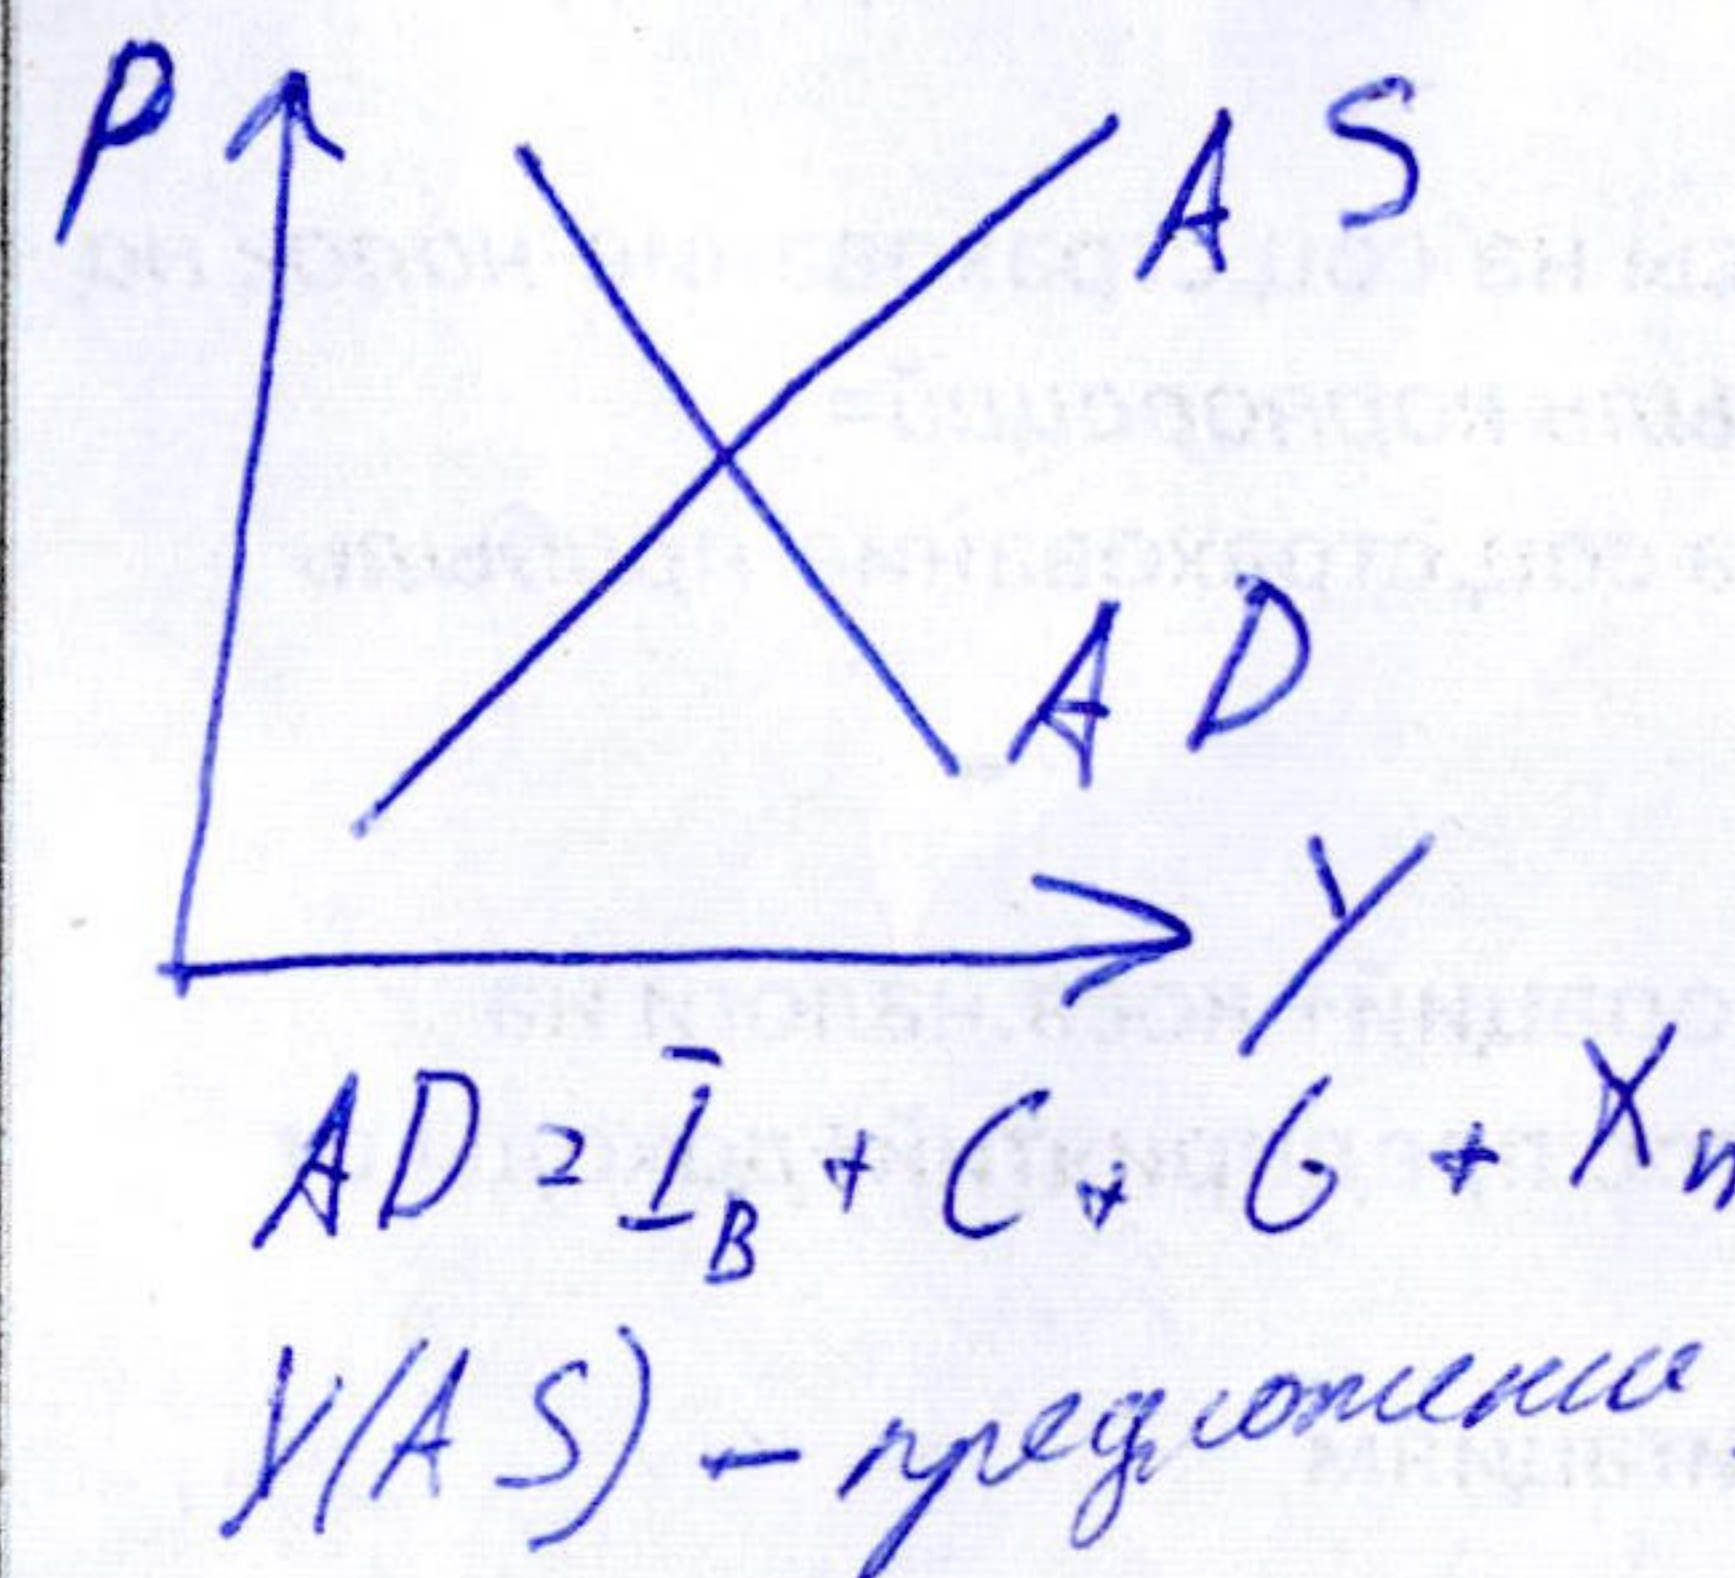 P
AS
AD
Y
AD = I̅_B + C + G + Xn
Y(AS) – предложение